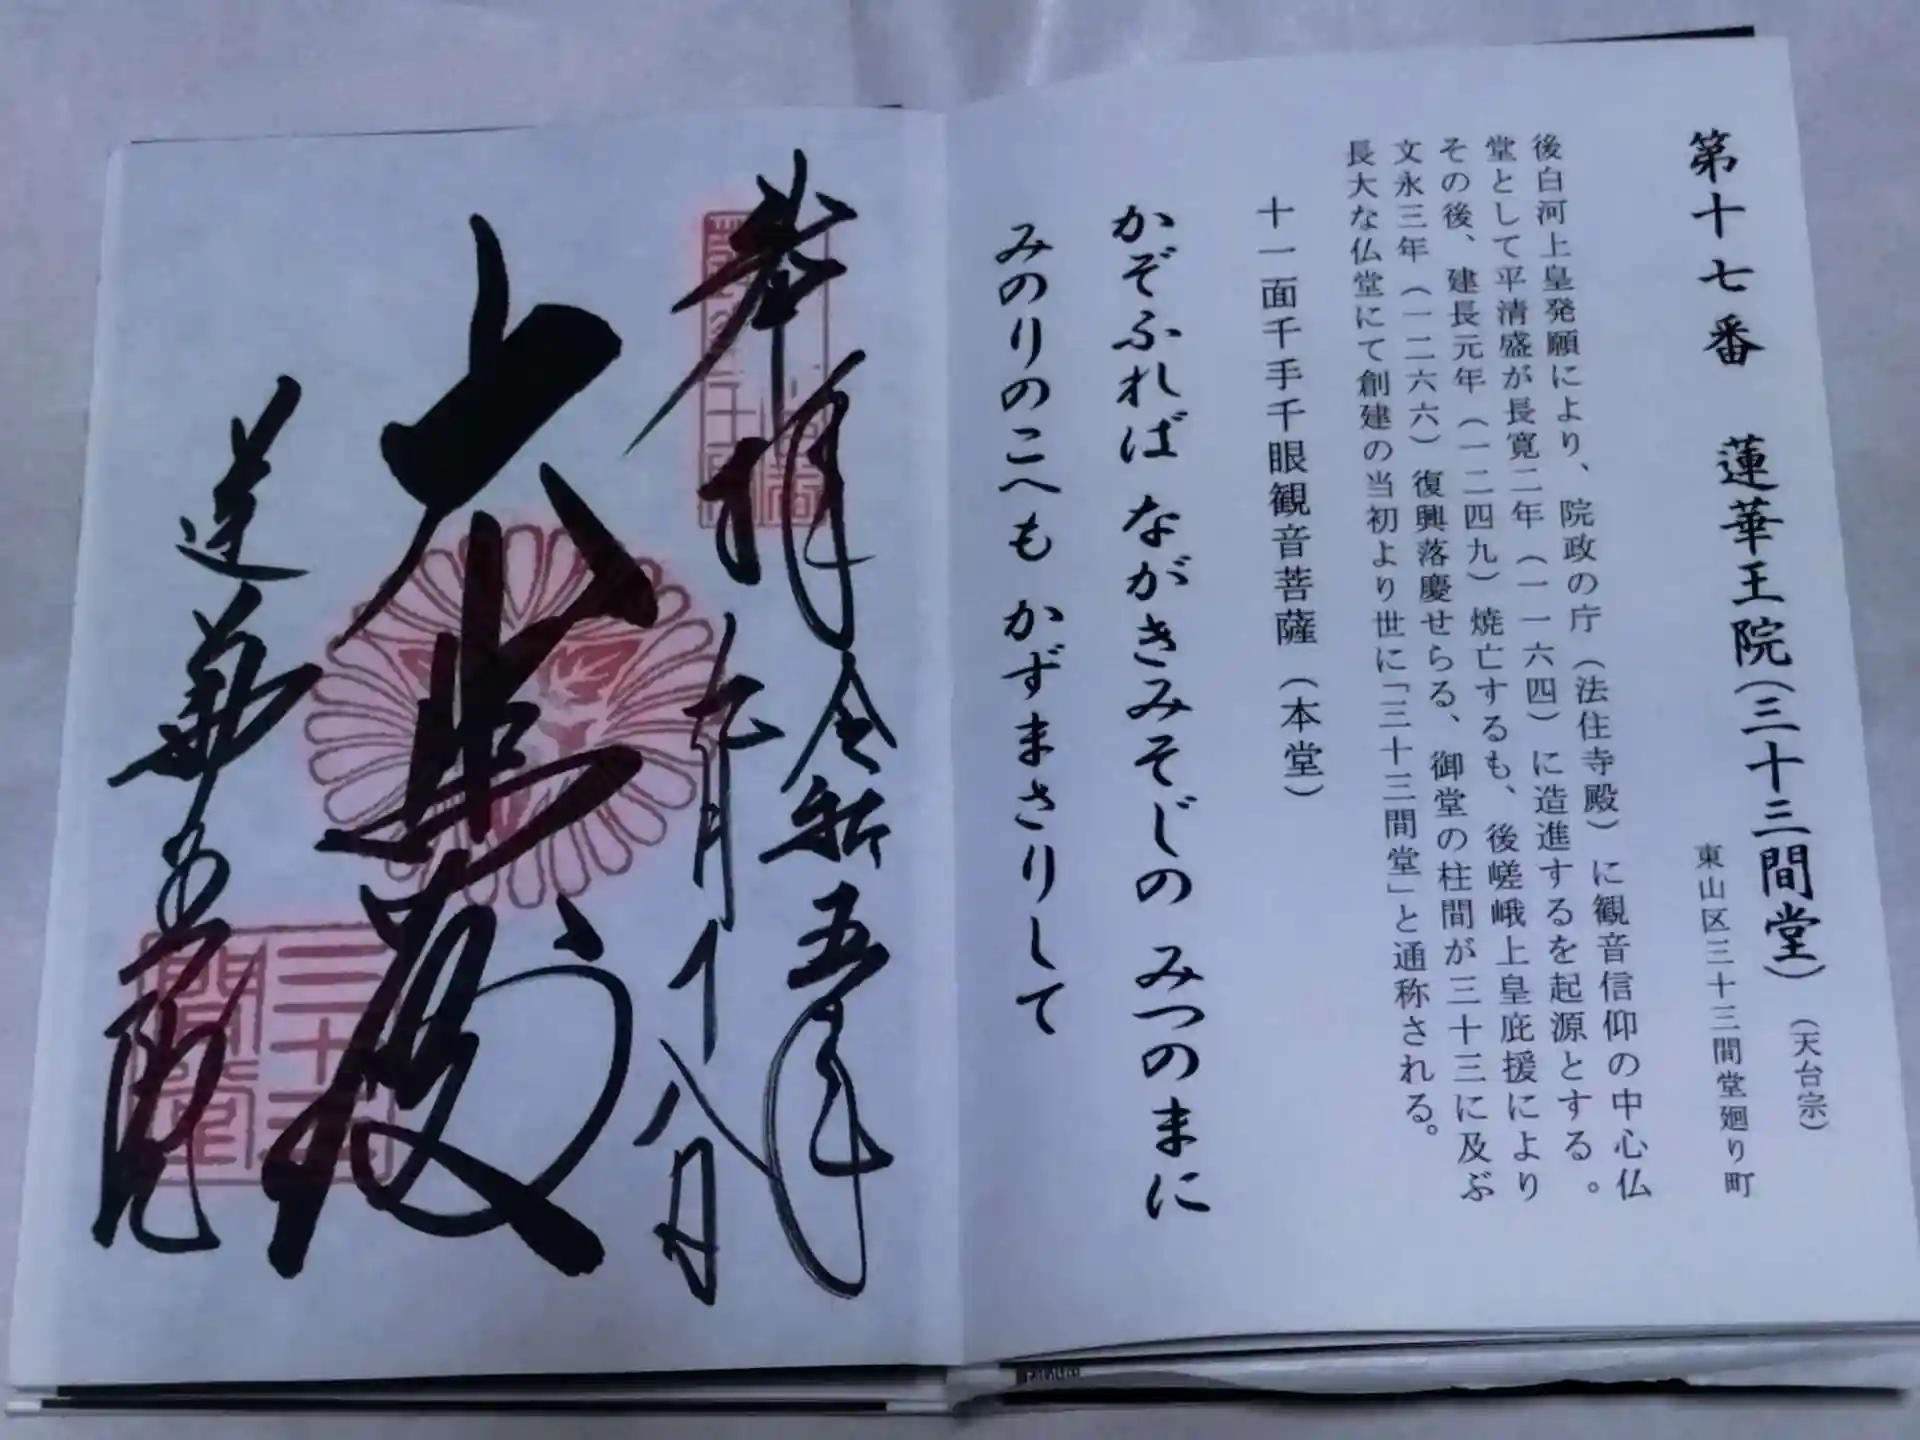 第十七番 蓮華王院(三十三間堂)(天台宗)
東山区三十三間堂廻り町
後白河上皇発願により、院政の庁(法住寺殿)に観音信仰の中心仏
堂として平清盛が長寛二年(一一六四)に造進するを起源とする。
その後、建長元年(一二四九)焼亡するも、後嵯峨上皇庇援により
文永三年(一二六六)復興落慶せらる、御堂の柱間が三十三に及ぶ
長大な仏堂にて創建の当初より世に「三十三間堂」と通称される。
十一面千手千眼観音菩薩(本堂)
かぞふれば ながきみそじの みつのまに
みのりのこへも かずまさりして
奉拝 令和五年
九月十八日
大悲殿
蓮華王院
三十三
間堂